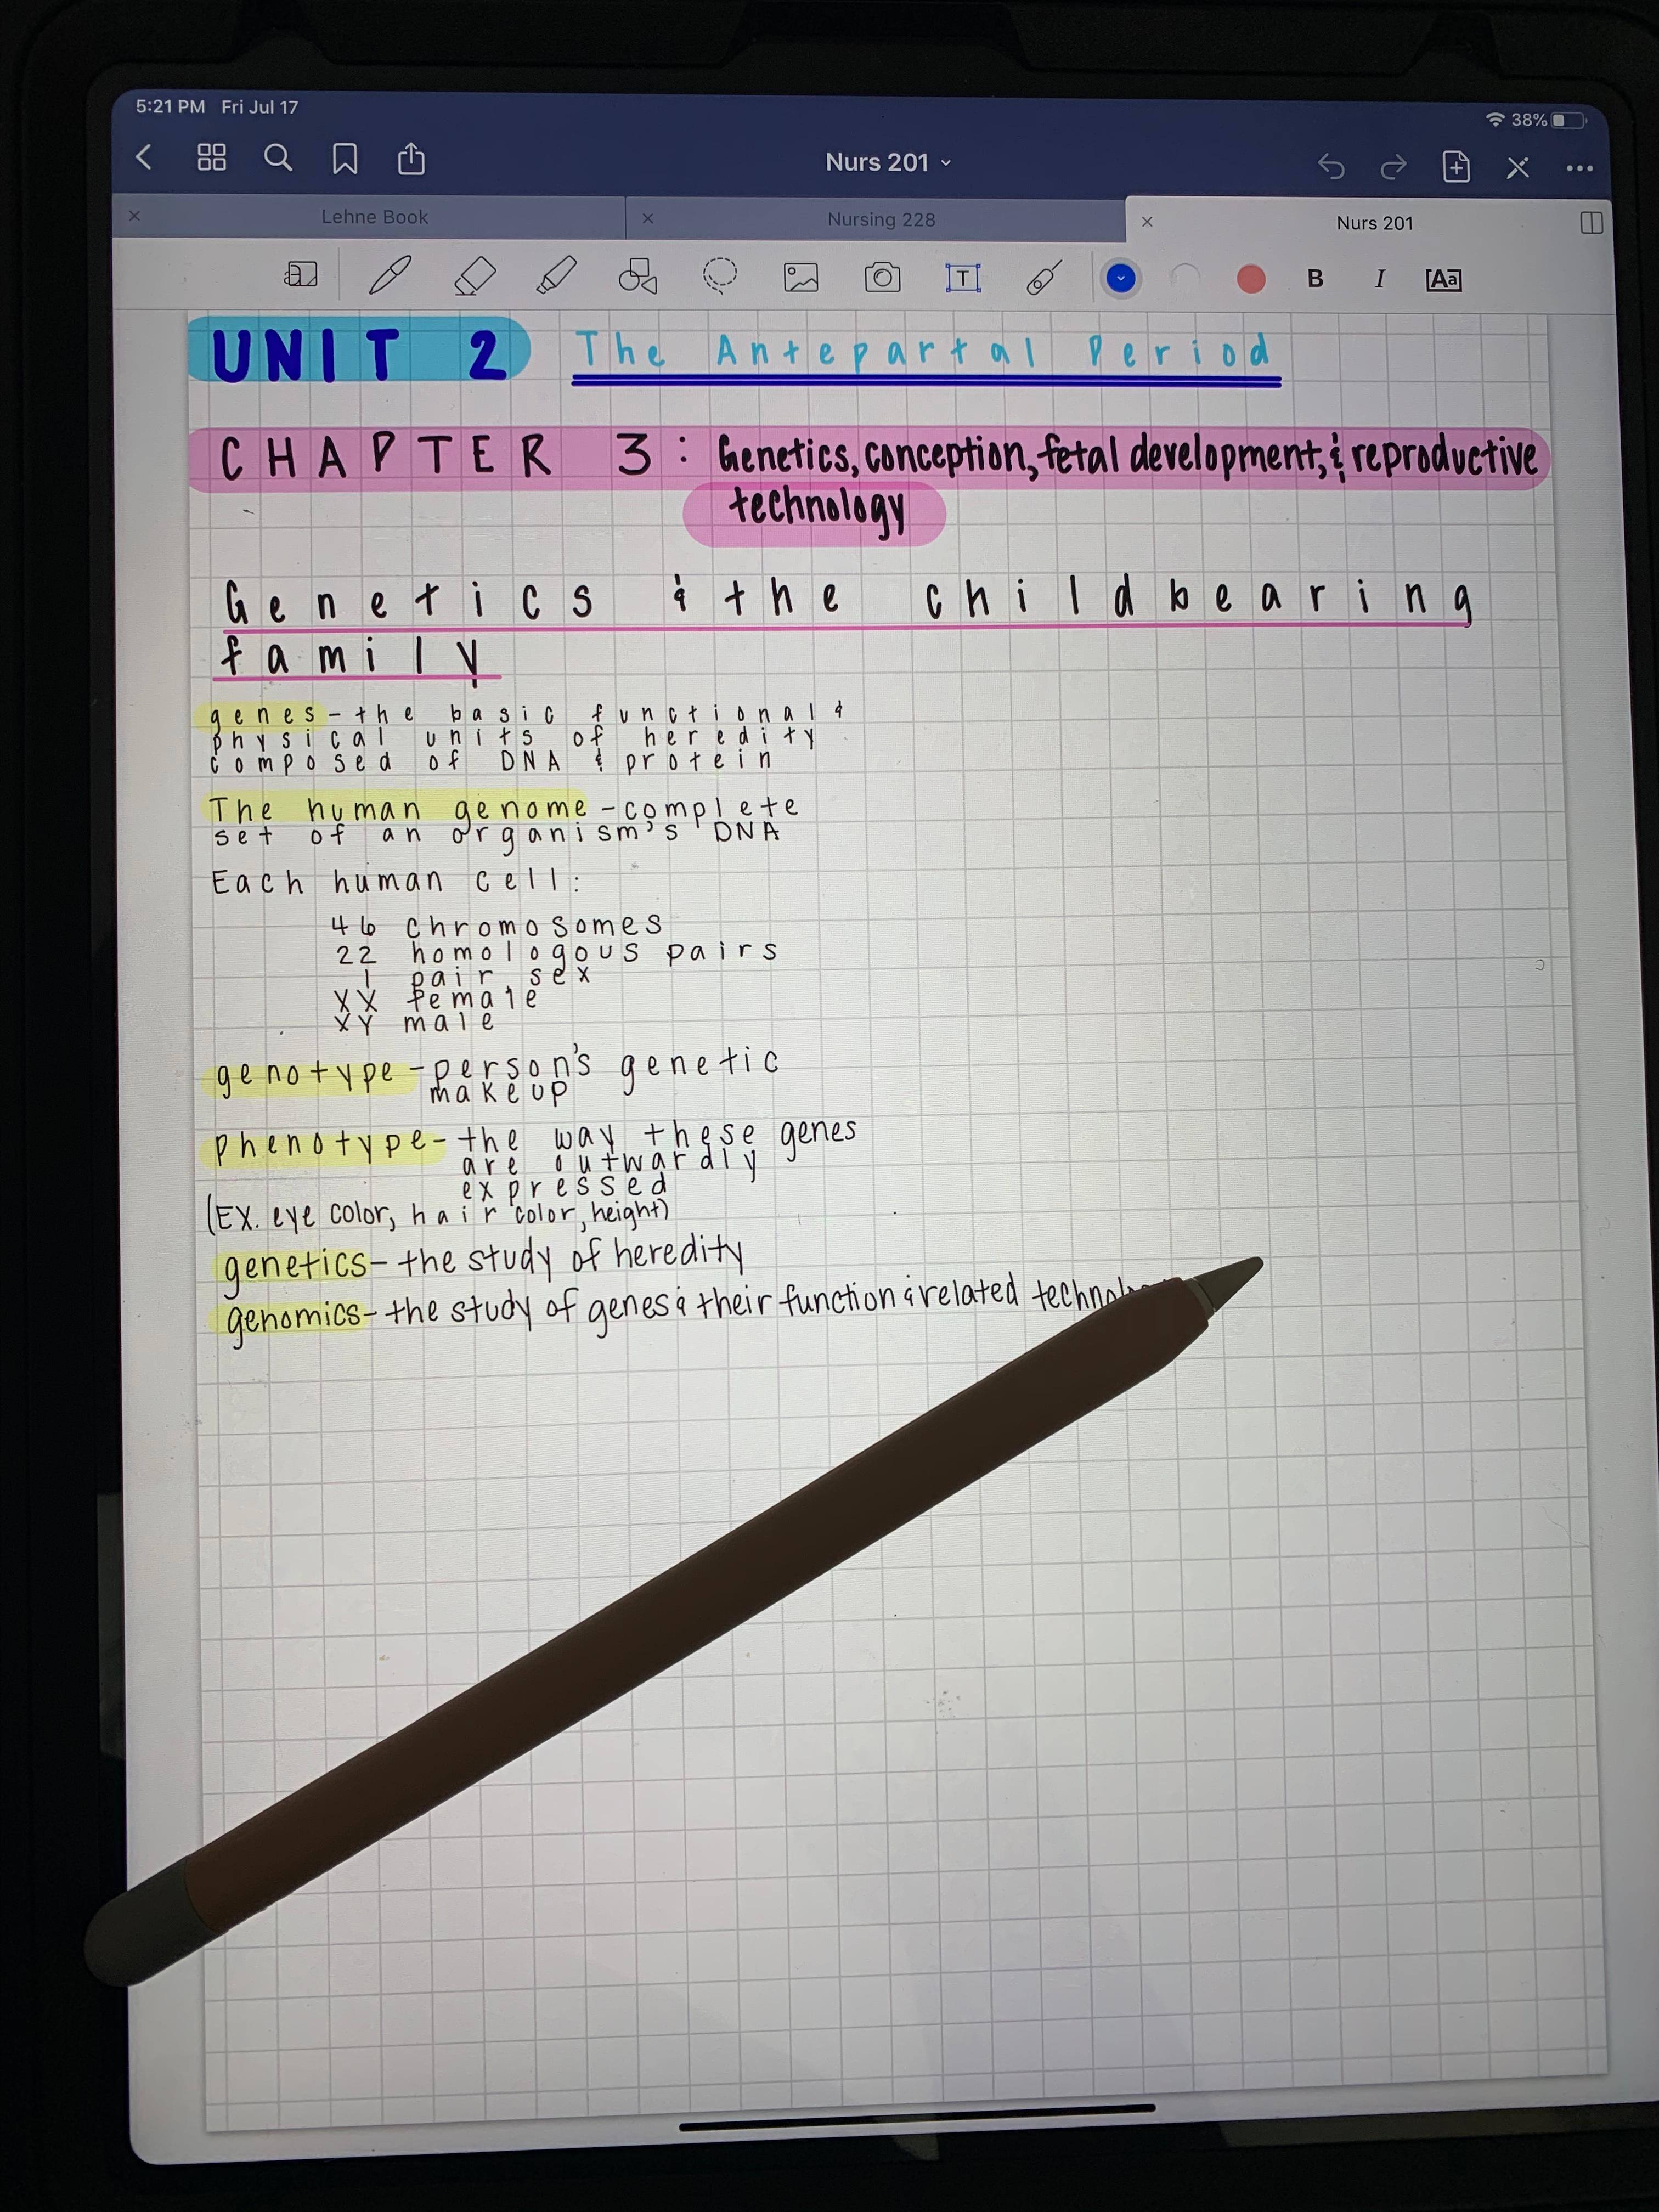 5:21 PM Fri Jul 17
38%
Nurs 201
Lehne Book
Nursing 228
Nurs 201
T
B I [Aa]
UNIT 2 The Antepartal Period
CHAPTER 3: Genetics, conception, fetal development, & reproductive
technology
Genetics & the childbearing
family
genes - the basic functional &
physical units of heredity
composed of DNA & protein
The human genome - complete
set of an organism's DNA
Each human cell:
46 chromosomes
22 homologous pairs
1 pair sex
XX female
XY male
genotype - person's genetic
makeup
phenotype - the way these genes
are outwardly
expressed
(EX. eye color, hair color, height)
genetics - the study of heredity
genomics - the study of genes & their function & related